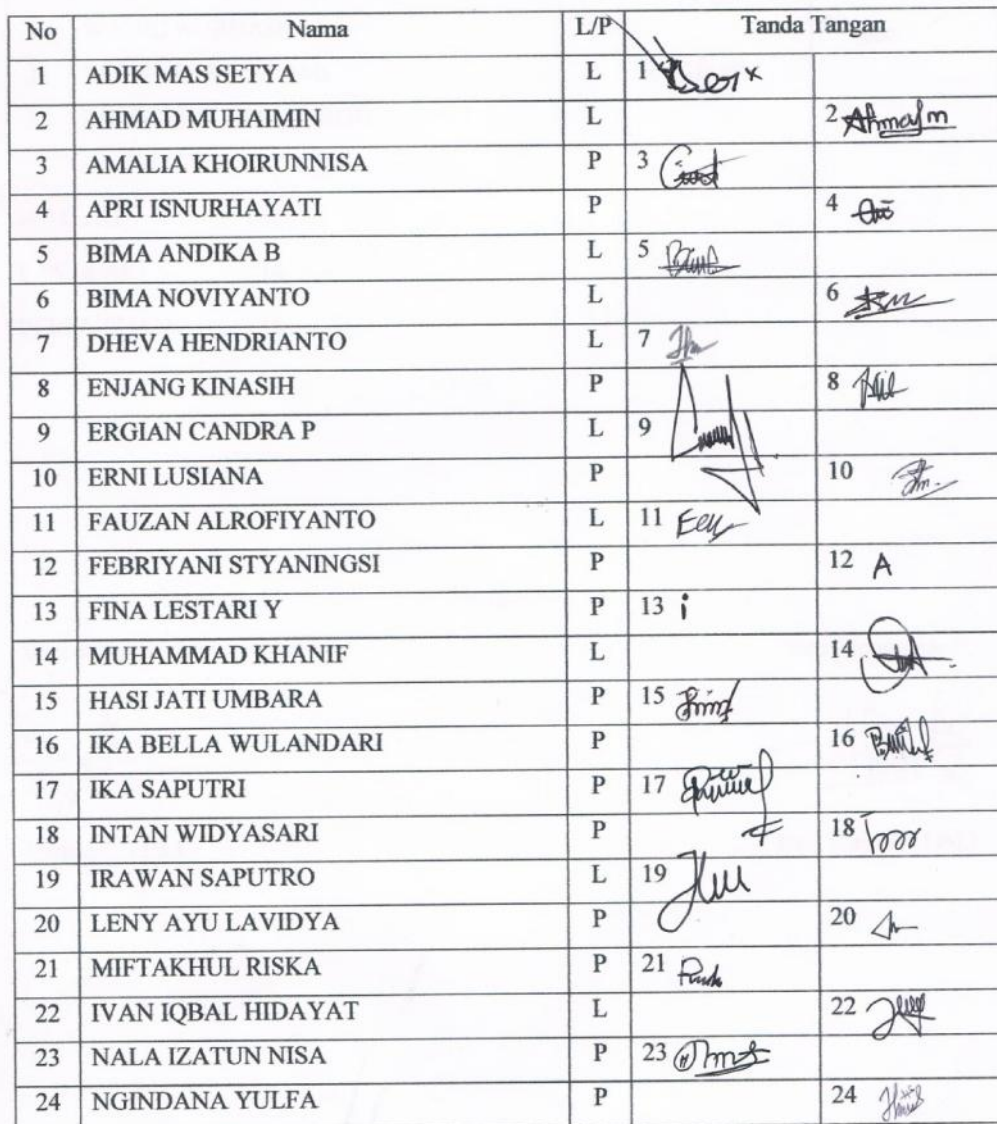 No Nama L/P Tanda Tangan
1 ADIK MAS SETYA L 1
2 AHMAD MUHAIMIN L 2
3 AMALIA KHOIRUNNISA P 3
4 APRI ISNURHAYATI P 4
5 BIMA ANDIKA B L 5
6 BIMA NOVIYANTO L 6
7 DHEVA HENDRIANTO L 7
8 ENJANG KINASIH P 8
9 ERGIAN CANDRA P L 9
10 ERNI LUSIANA P 10
11 FAUZAN ALROFIYANTO L 11
12 FEBRIYANI STYANINGSI P 12 A
13 FINA LESTARI Y P 13 i
14 MUHAMMAD KHANIF L 14
15 HASI JATI UMBARA P 15
16 IKA BELLA WULANDARI P 16
17 IKA SAPUTRI P 17
18 INTAN WIDYASARI P 18
19 IRAWAN SAPUTRO L 19
20 LENY AYU LAVIDYA P 20
21 MIFTAKHUL RISKA P 21
22 IVAN IQBAL HIDAYAT L 22
23 NALA IZATUN NISA P 23
24 NGINDANA YULFA P 24